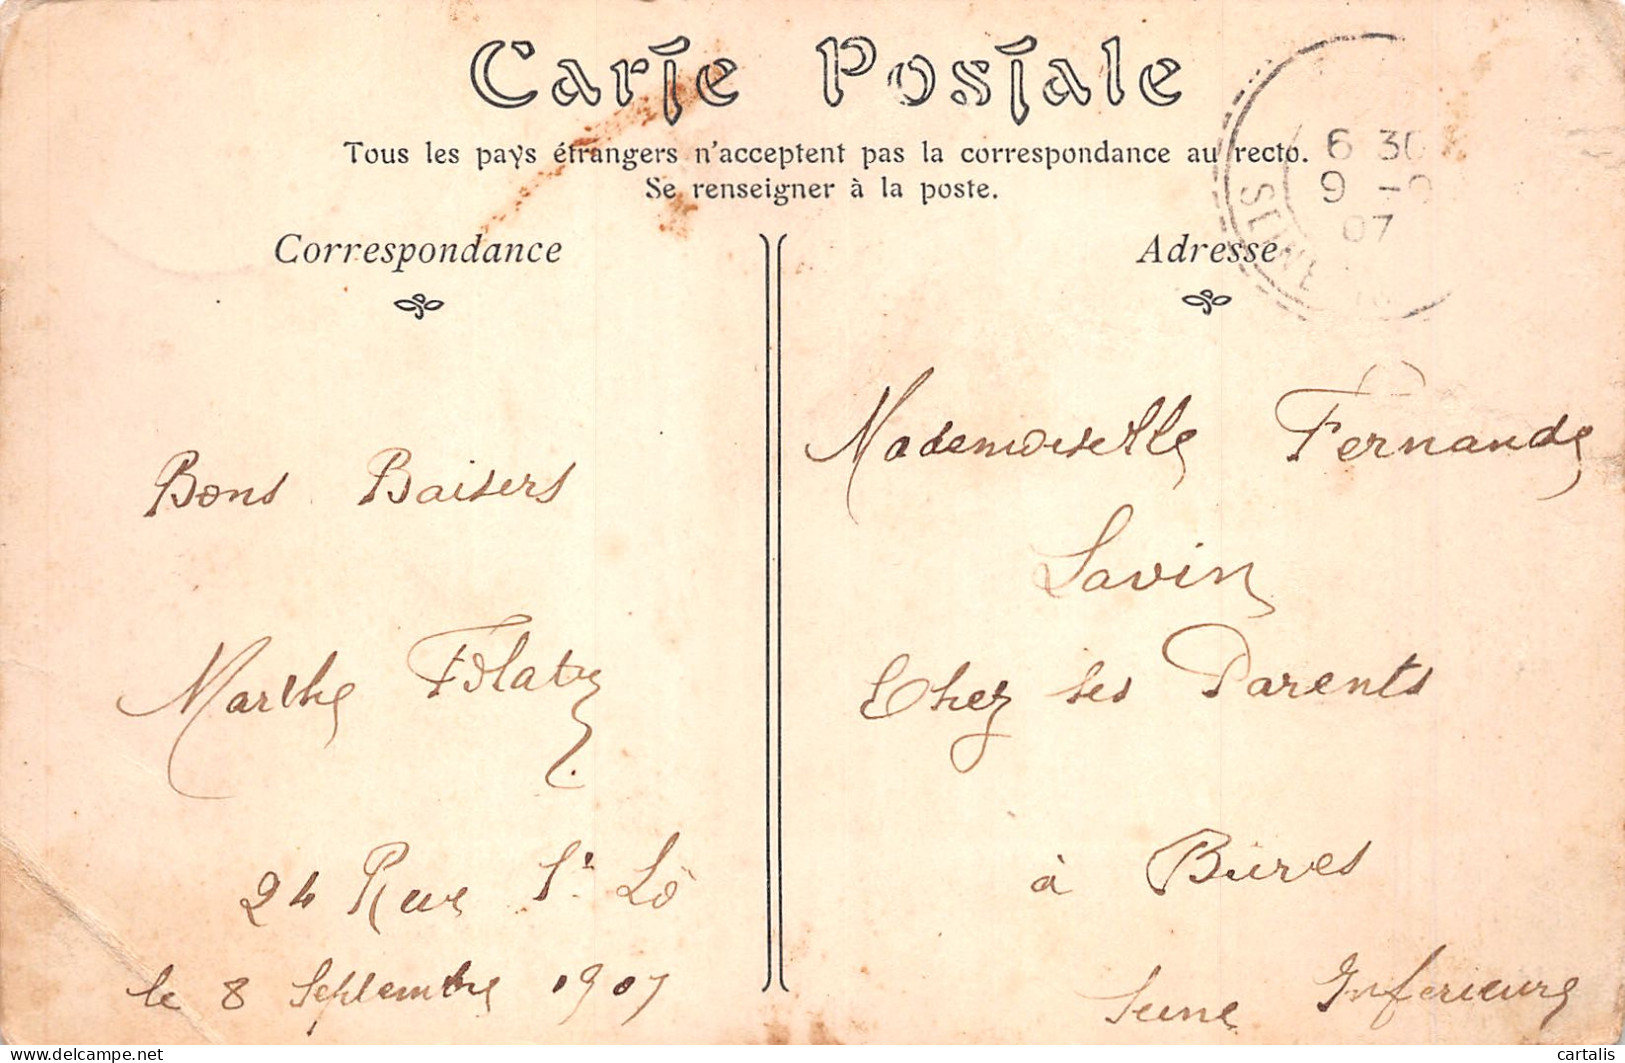 Carte Postale
Tous les pays étrangers n'acceptent pas la correspondance au recto.
Se renseigner à la poste.
Correspondance
Bons Baisers
Marthe
24 Rue St. Lô
le 8 Septembre 1907
Adresse
Mademoiselle Fernande
Lavin
Chez ses Parents
à Bures
Seine Inferieure
6 30
9 -9
07
SEINE
delcampe.net
cartalis